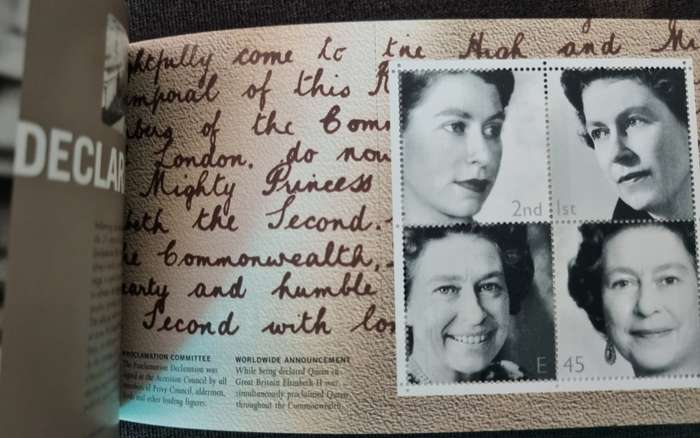 DECLAR
ghtfully come to the High and M
mporal of this R
mberg of the Comm
London, do now
Mighty Princess
beth the Second.
e Commonwealth,
earty and humble
Second with lo
2nd
1st
E
45
PROCLAMATION COMMITTEE
The Proclamation Declaration was
signed at the Accession Council by all
members of Privy Council, aldermen,
lords and other leading figures.
WORLDWIDE ANNOUNCEMENT
While being declared Queen in
Great Britain Elizabeth II was
simultaneously proclaimed Queen
throughout the Commonwealth.